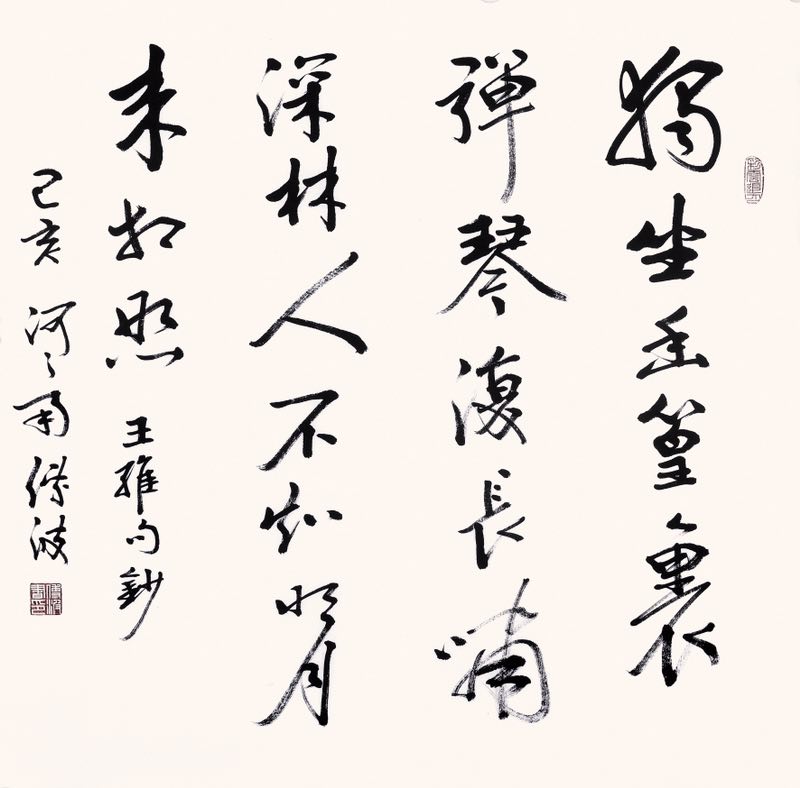 獨坐幽篁裏
彈琴復長嘯
深林人不知明月
来相照
王維句鈔
己亥 河南 傑波